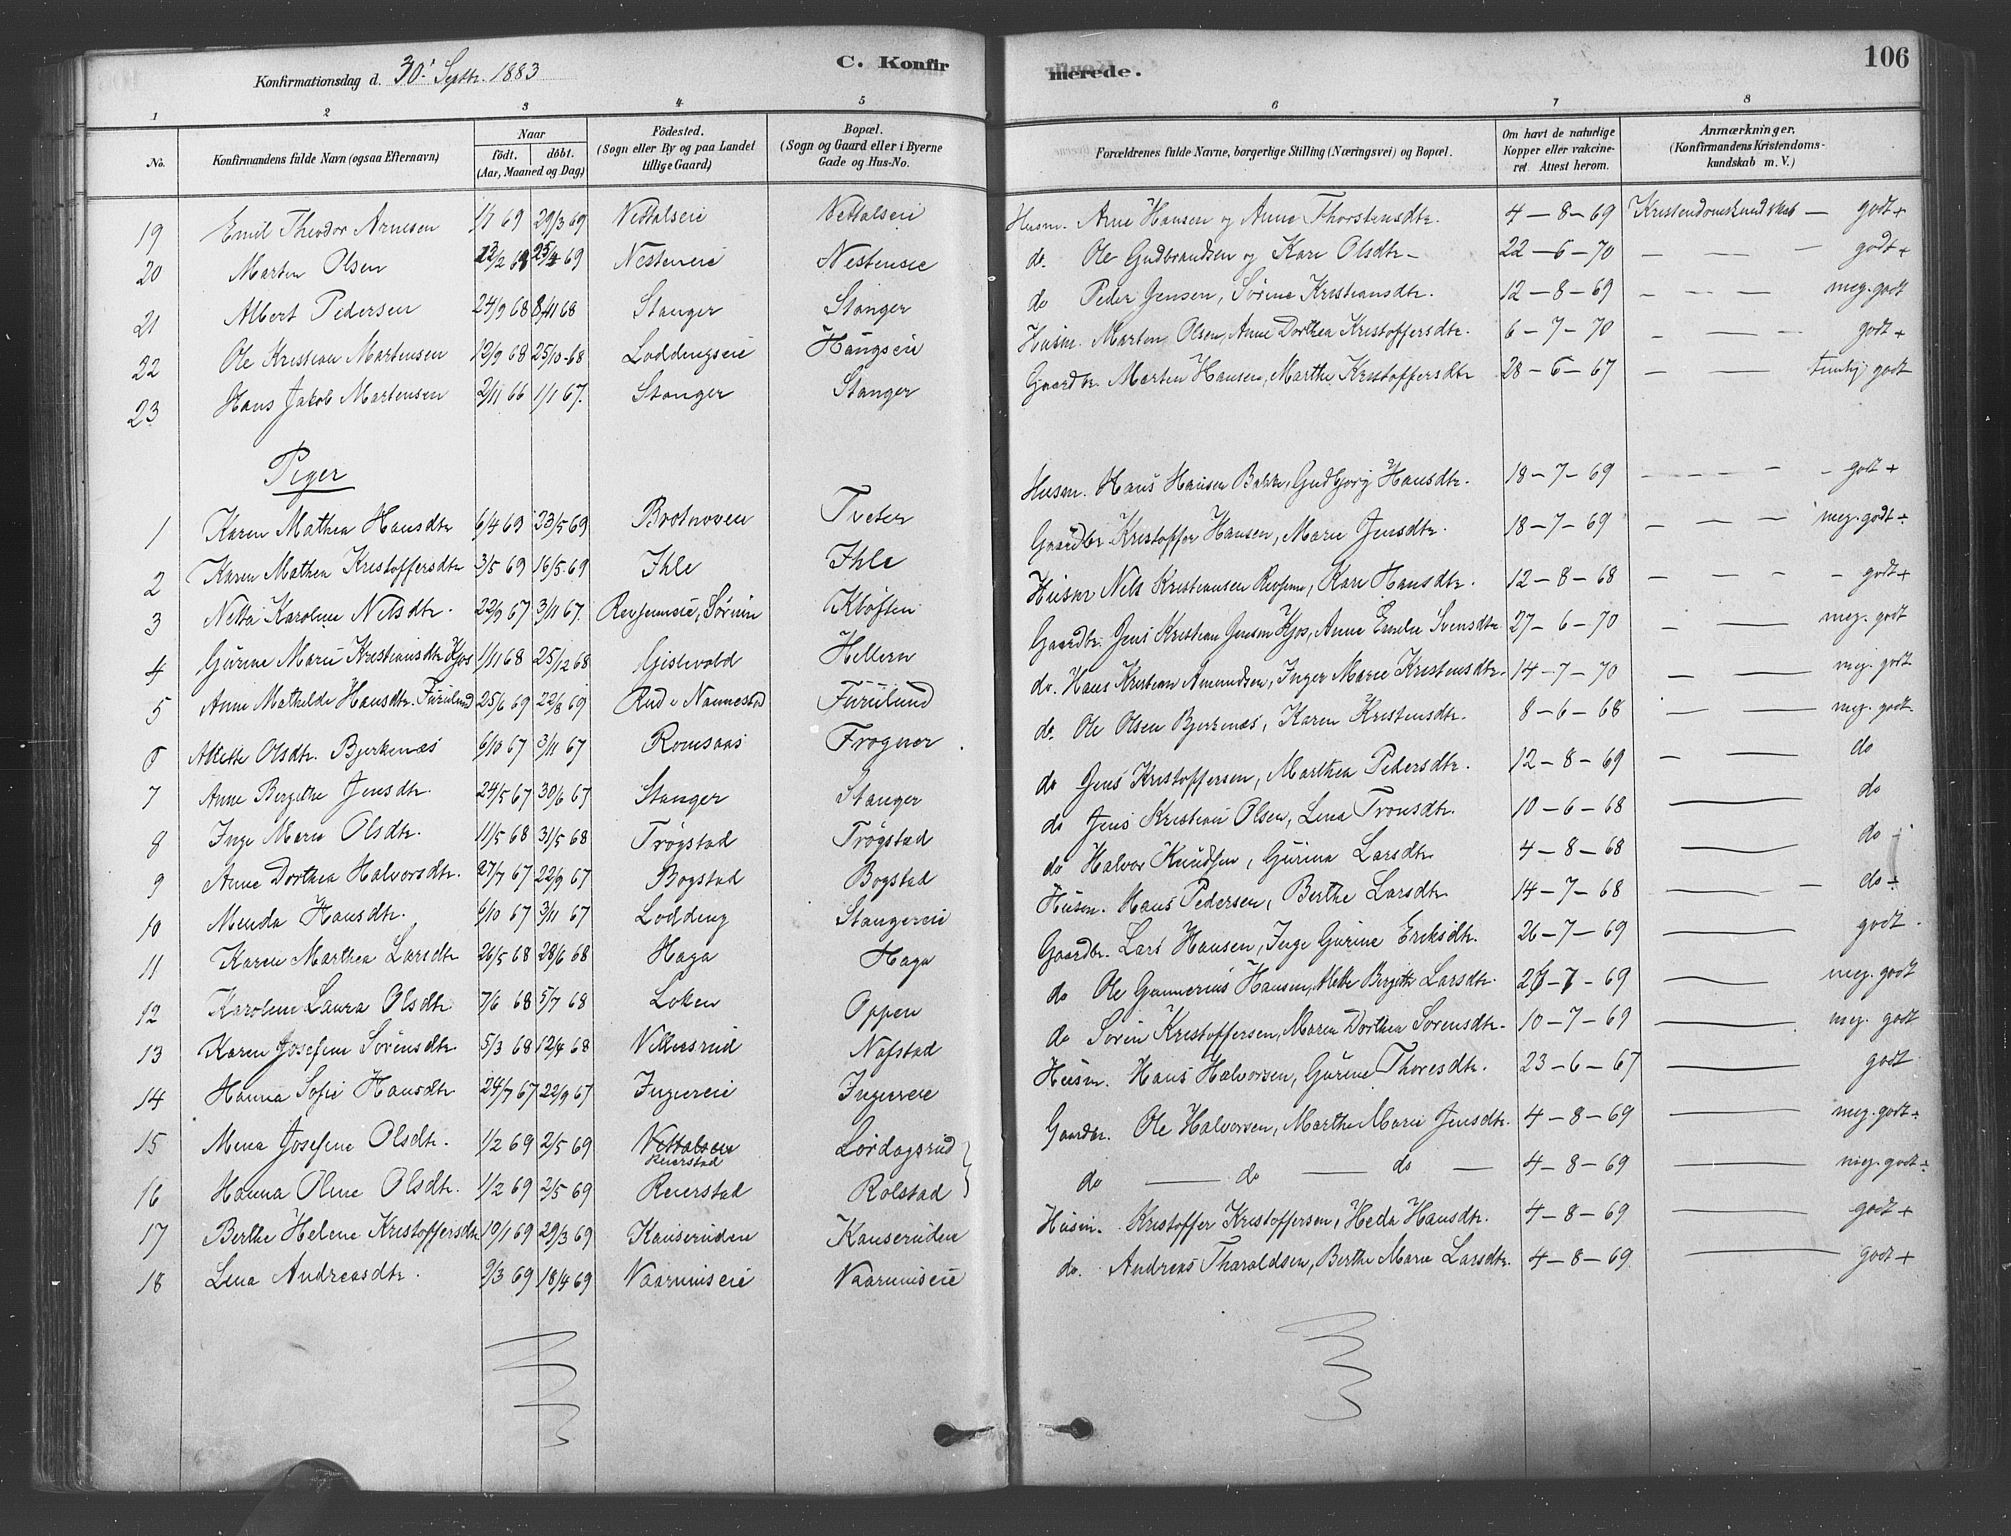 Konfirmationsdag d. 30' Septbr. 1883
C. Konfirmerede.
106
1 2 3 4 5 6 7 8
No. | Konfirmandens fulde Navn (ogsaa Efternavn) | Naar født. døbt. (Aar, Maaned og Dag) | Födested. (Sogn eller By og paa Landet tillige Gaard) | Bopæl. (Sogn og Gaard eller i Byerne Gade og Hus-No. | Forældrenes fulde Navne, borgerlige Stilling (Næringsvei) og Bopæl. | Om havt de naturlige Kopper eller vakcineret. Attest herom. | Anmærkninger. (Konfirmandens Kristendomskundskab m. V.)
19 Emil Theodor Arnesen 1/1 69 29/3 69 Nettalseie Nettalseie Husm. Arne Hansen og Anne Thorstensdtr. 4-8-69 Kristendomskundskab — godt +
20 Marten Olsen 25/4 69 Nesteneie Nesteneie do. Ole Gudbrandsen og Kari Olsdtr 22-6-70 — — — godt +
21 Albert Pedersen 24/9 68 8/11 68 Stanger Stanger do Peder Jensen, Sørine Kristiansdtr. 12-8-69 — — — meg. godt
22 Ole Kristian Martensen 12/9 68 25/10 68 Loddingseie Haugseie Husm. Marten Olsen, Anne Dorthea Kristoffersdtr. 6-7-70 — — godt +
23 Hans Jakob Martensen 2/11 66 1/1 67. Stanger Stanger Gaardbr. Marten Hansen, Marthe Kristoffersdtr 28-6-67 — — temlig godt
Piger
1 Karen Mathea Hansdtr 6/4 69 23/5 69 Brotnoveie Tveter Husm. Hans Hansen Bakke, Gudbjørg Hansdtr. 18-7-69 — — — godt +
2 Karen Mathea Kristoffersdtr 3/5 69 16/5 69 Ihle Ihle Gaardbr Kristoffer Hansen, Marie Jensdtr. 18-7-69 — — — meg. godt +
3 Netta Karoline Nilsdtr. 22/9 67 3/11 67. Kløften Husm Nils Kristiansen Kari Hansdtr. 12-8-68 — — — godt +
4 Gurine Marie Kristiansdtr Kjos 1/11 68 25/12 68 Gislevold Hellern Gaardbr. Jens Kristian Jensen Kjos, Anne Emilie Svensdtr. 27-6-70 — — meg. godt
5 Anne Mathilde Hansdtr. Furulund 25/6 69 22/8 69 Rud i Nannestad Furulund do. Hans Kristian Amundsen, Inger Marie Kristensdtr. 14-7-70 — — meg. godt
6 Olsdtr. Bjerkenæs 6/10 67 3/11 67 Romsaas Frogner do. Ole Olsen Bjerkenæs, Karen Kristensdtr. 8-6-68 — — meg. godt.
7 Anne Bergithe Jensdtr. 24/5 67 30/6 67 Stanger Stanger do Jens Kristoffersen, Marthea Pedersdtr. 12-8-69 — — do
8 Inge Marie Olsdtr. 11/5 68 31/5 68 Trøgstad Trøgstad do Jens Kristian Olsen, Lena Tronsdtr. 10-6-68 — do
9 Anne Dorthea Halvorsdtr. 27/7 67 22/9 67 Bogstad Bogstad do Halvor Knudsen, Gurina Larsdtr 4-8-68 — do
10 Menda Hansdtr. 6/10 67 3/11 67 Lodding Stangereie Husm. Hans Pedersen, Berthe Larsdtr 14-7-68 — — do +
11 Karen Marthea Larsdtr 26/5 68 28/6 68 Haga Haga Gaardbr. Lars Hansen, Inge Gurine Eriksdtr. 26-7-69 — godt
12 Karoline Laura Olsdtr 7/6 68 5/7 68 Loken Oppen do Ole Gunnerius Hansen, Mette Bergitte Larsdtr. 26-7-69 — meg. godt
13 Karen Josefine Sørensdtr. 5/3 68 12/4 68 Nafstad do Søren Kristoffersen, Maren Dorthea Sørensdtr. 10-7-69 — meg. godt
14 Hanna Sofie Hansdtr 24/7 67 22/9 67 Ingiereie Ingiereie Husm. Hans Halvorsen, Gurine Thoresdtr. 23-6-67 — godt
15 Mena Josefine Olsdtr. 1/2 69 2/5 69 Nettalseie Reierstad Lørdagsrud Gaardbr. Ole Halvorsen, Marthe Marie Jensdtr. 4-8-69 — meg. godt +
16 Hanna Oline Olsdtr. 1/2 69 2/5 69 Reierstad Rolstad do — do — do — 4-8-69 — meg. godt +
17 Berthe Helene Kristoffersdtr 19/1 69 29/3 69 Kauseruden Kauseruden Husm. Kristoffer Kristoffersen, Heda Hansdtr. 4-8-69 — godt +
18 Lina Andreasdtr. 9/3 69 18/4 69 Naarumseie Naarumseie do. Andreas Tharaldsen, Berthe Marie Larsdtr. 4-8-69 — godt +